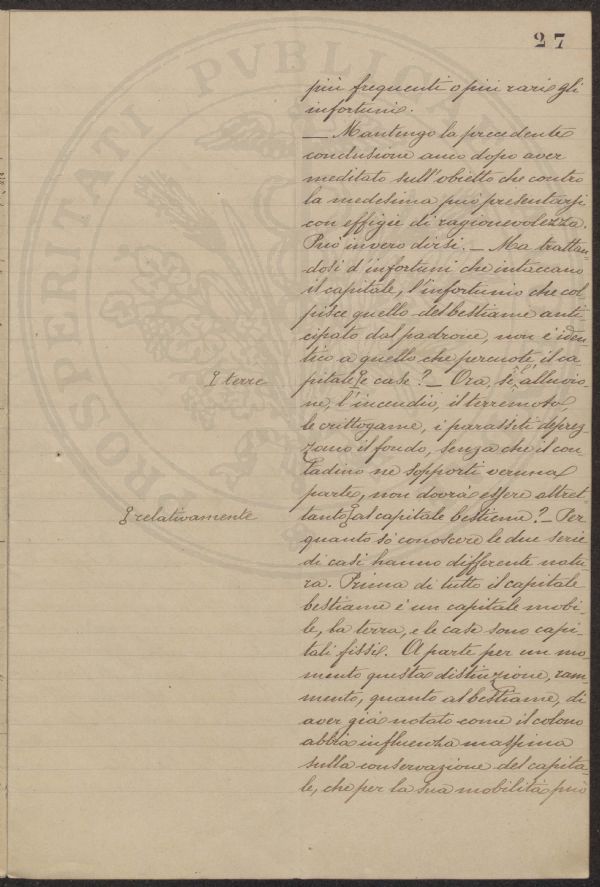 27
più frequenti o più rari gli
infortuni.
— Mantengo la precedente
conclusione anco dopo aver
meditato sull'obietto che contro
la medesima può presentarsi
con effigie di ragionevolezza.
Può invero dirsi. — Ma trattan-
dosi d'infortuni che intaccano
il capitale, l'infortunio che col-
pisce quello del bestiame anti-
cipato dal padrone, non è iden-
tico a quello che percuote il ca-
terre
pitale e case? — Ora, se l'alluvio-
ne, l'incendio, il terremoto,
le crittogame, i parassiti deprez-
zano il fondo, senza che il con-
tadino ne sopporti veruna
parte, non dovrà essere altret-
relativamente
tanto al capitale bestiame? — Per
quanto si conoscere le due serie
di casi hanno differente natu-
ra. Prima di tutto il capitale
bestiame è un capitale mobi-
le, la terra, e le case sono capi-
tali fissi. A parte per un mo-
mento questa distinzione, ram-
mento, quanto al bestiame, di
aver già notato come il colono
abbia influenza massima
sulla conservazione del capita-
le, che per la sua mobilità può
PROSPERITATI PVBLICAE